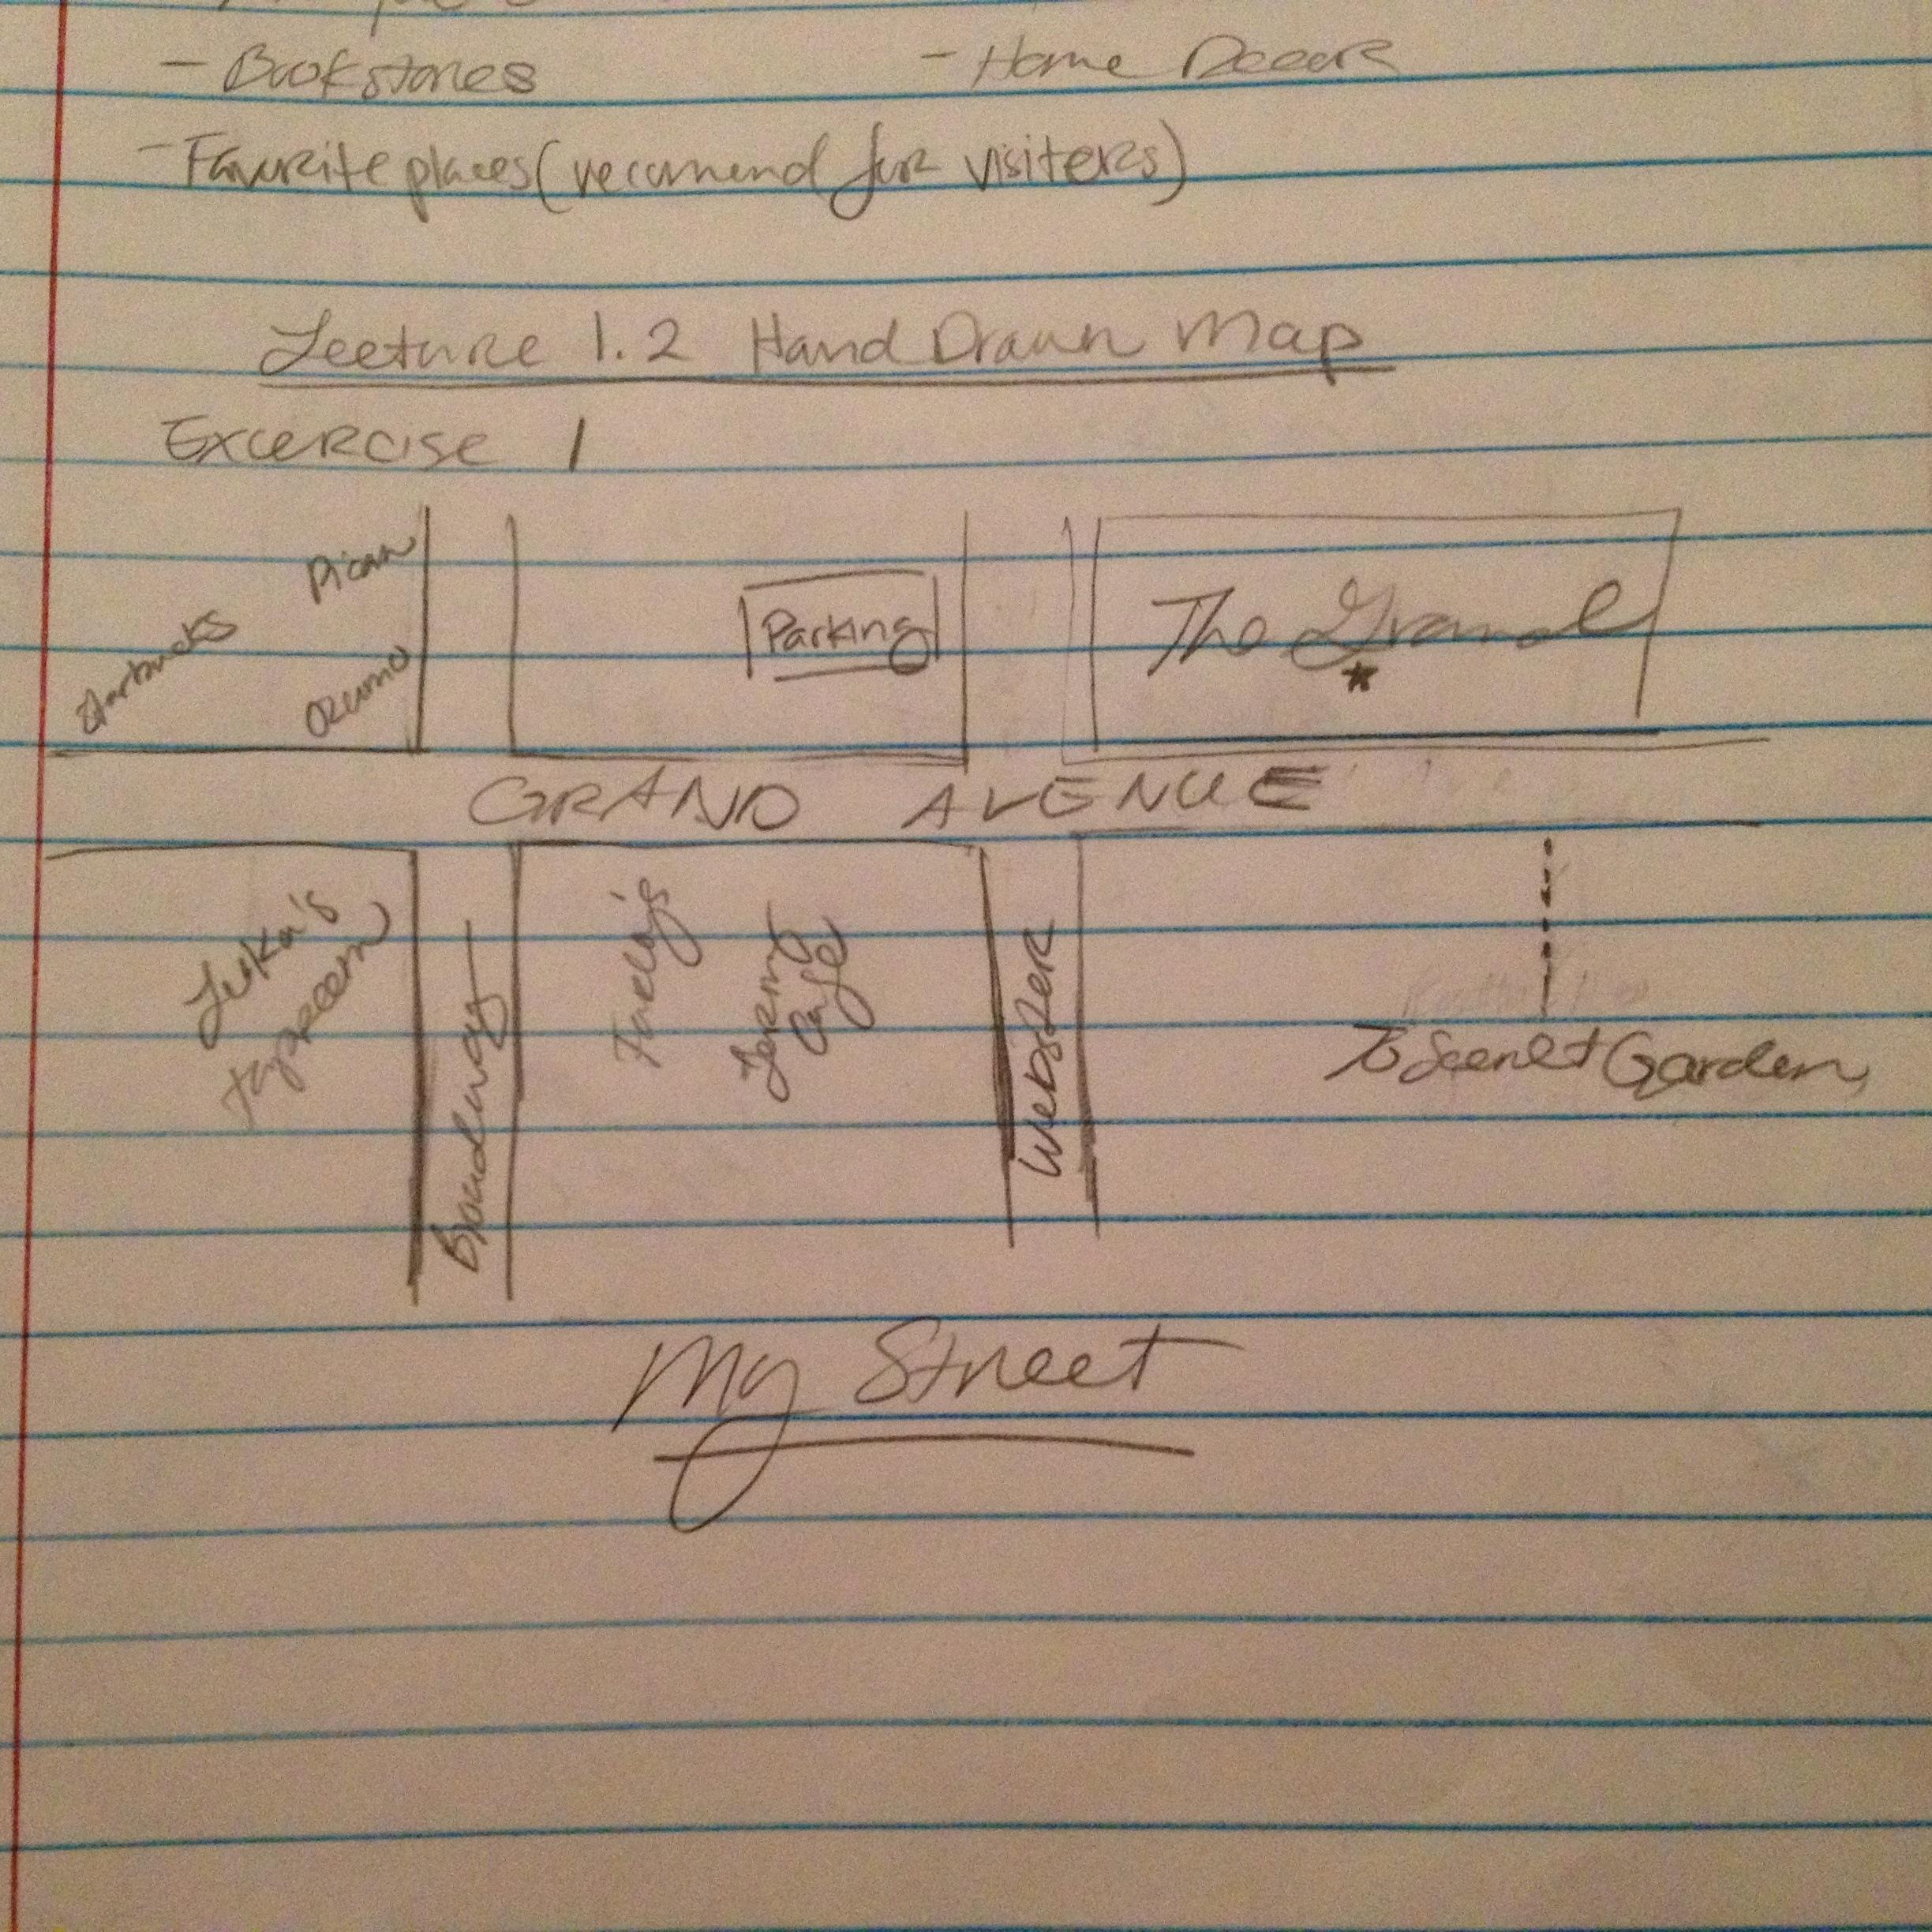 - Bookstores
- Home Decor
- Favorite places (recomend for visiters)
Lecture 1.2 Hand Drawn Map
Excercise 1
Starbucks
Pican
Ozumo
Parking
The Grand
*
GRAND AVENUE
Luka's
taproom
Broadway
Farley's
Cafe
Webster
To Secret Garden
My Street